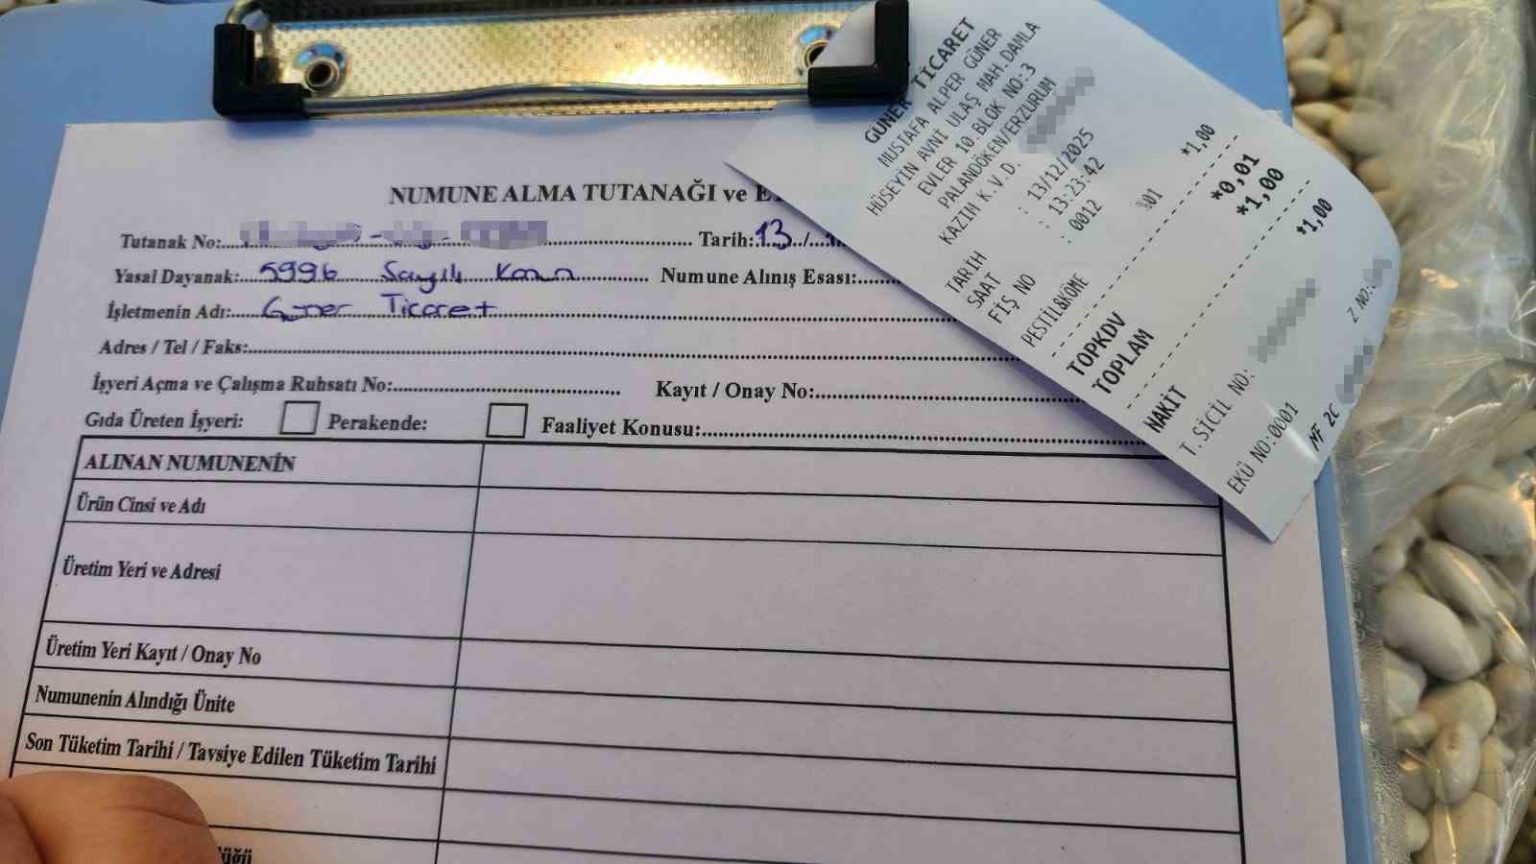 NUMUNE ALMA TUTANAĞI ve
Tutanak No:
Tarih: 13 /
Yasal Dayanak: 5996 Sayılı Kanun
Numune Alınış Esası:
İşletmenin Adı: Güner Ticaret
Adres / Tel / Faks:
İşyeri Açma ve Çalışma Ruhsatı No:
Kayıt / Onay No:
Gıda Üreten İşyeri: Perakende: Faaliyet Konusu:
ALINAN NUMUNENİN
Ürün Cinsi ve Adı
Üretim Yeri ve Adresi
Üretim Yeri Kayıt / Onay No
Numunenin Alındığı Ünite
Son Tüketim Tarihi / Tavsiye Edilen Tüketim Tarihi
GÜNER TİCARET
MUSTAFA ALPER GÜNER
HÜSEYİN AVNİ ULAŞ MAH.DAMLA
EVLER 10 BLOK NO:3
PALANDÖKEN/ERZURUM
KAZIN K.V.D.
TARİH : 13/12/2025
SAAT : 13:23:42
FİŞ NO : 0012
PESTİL&KÖME %01 *1,00
TOPKDV *0,01
TOPLAM *1,00
NAKİT *1,00
T.SİCİL NO:
EKÜ NO:0001
Z NO:
MF 2C